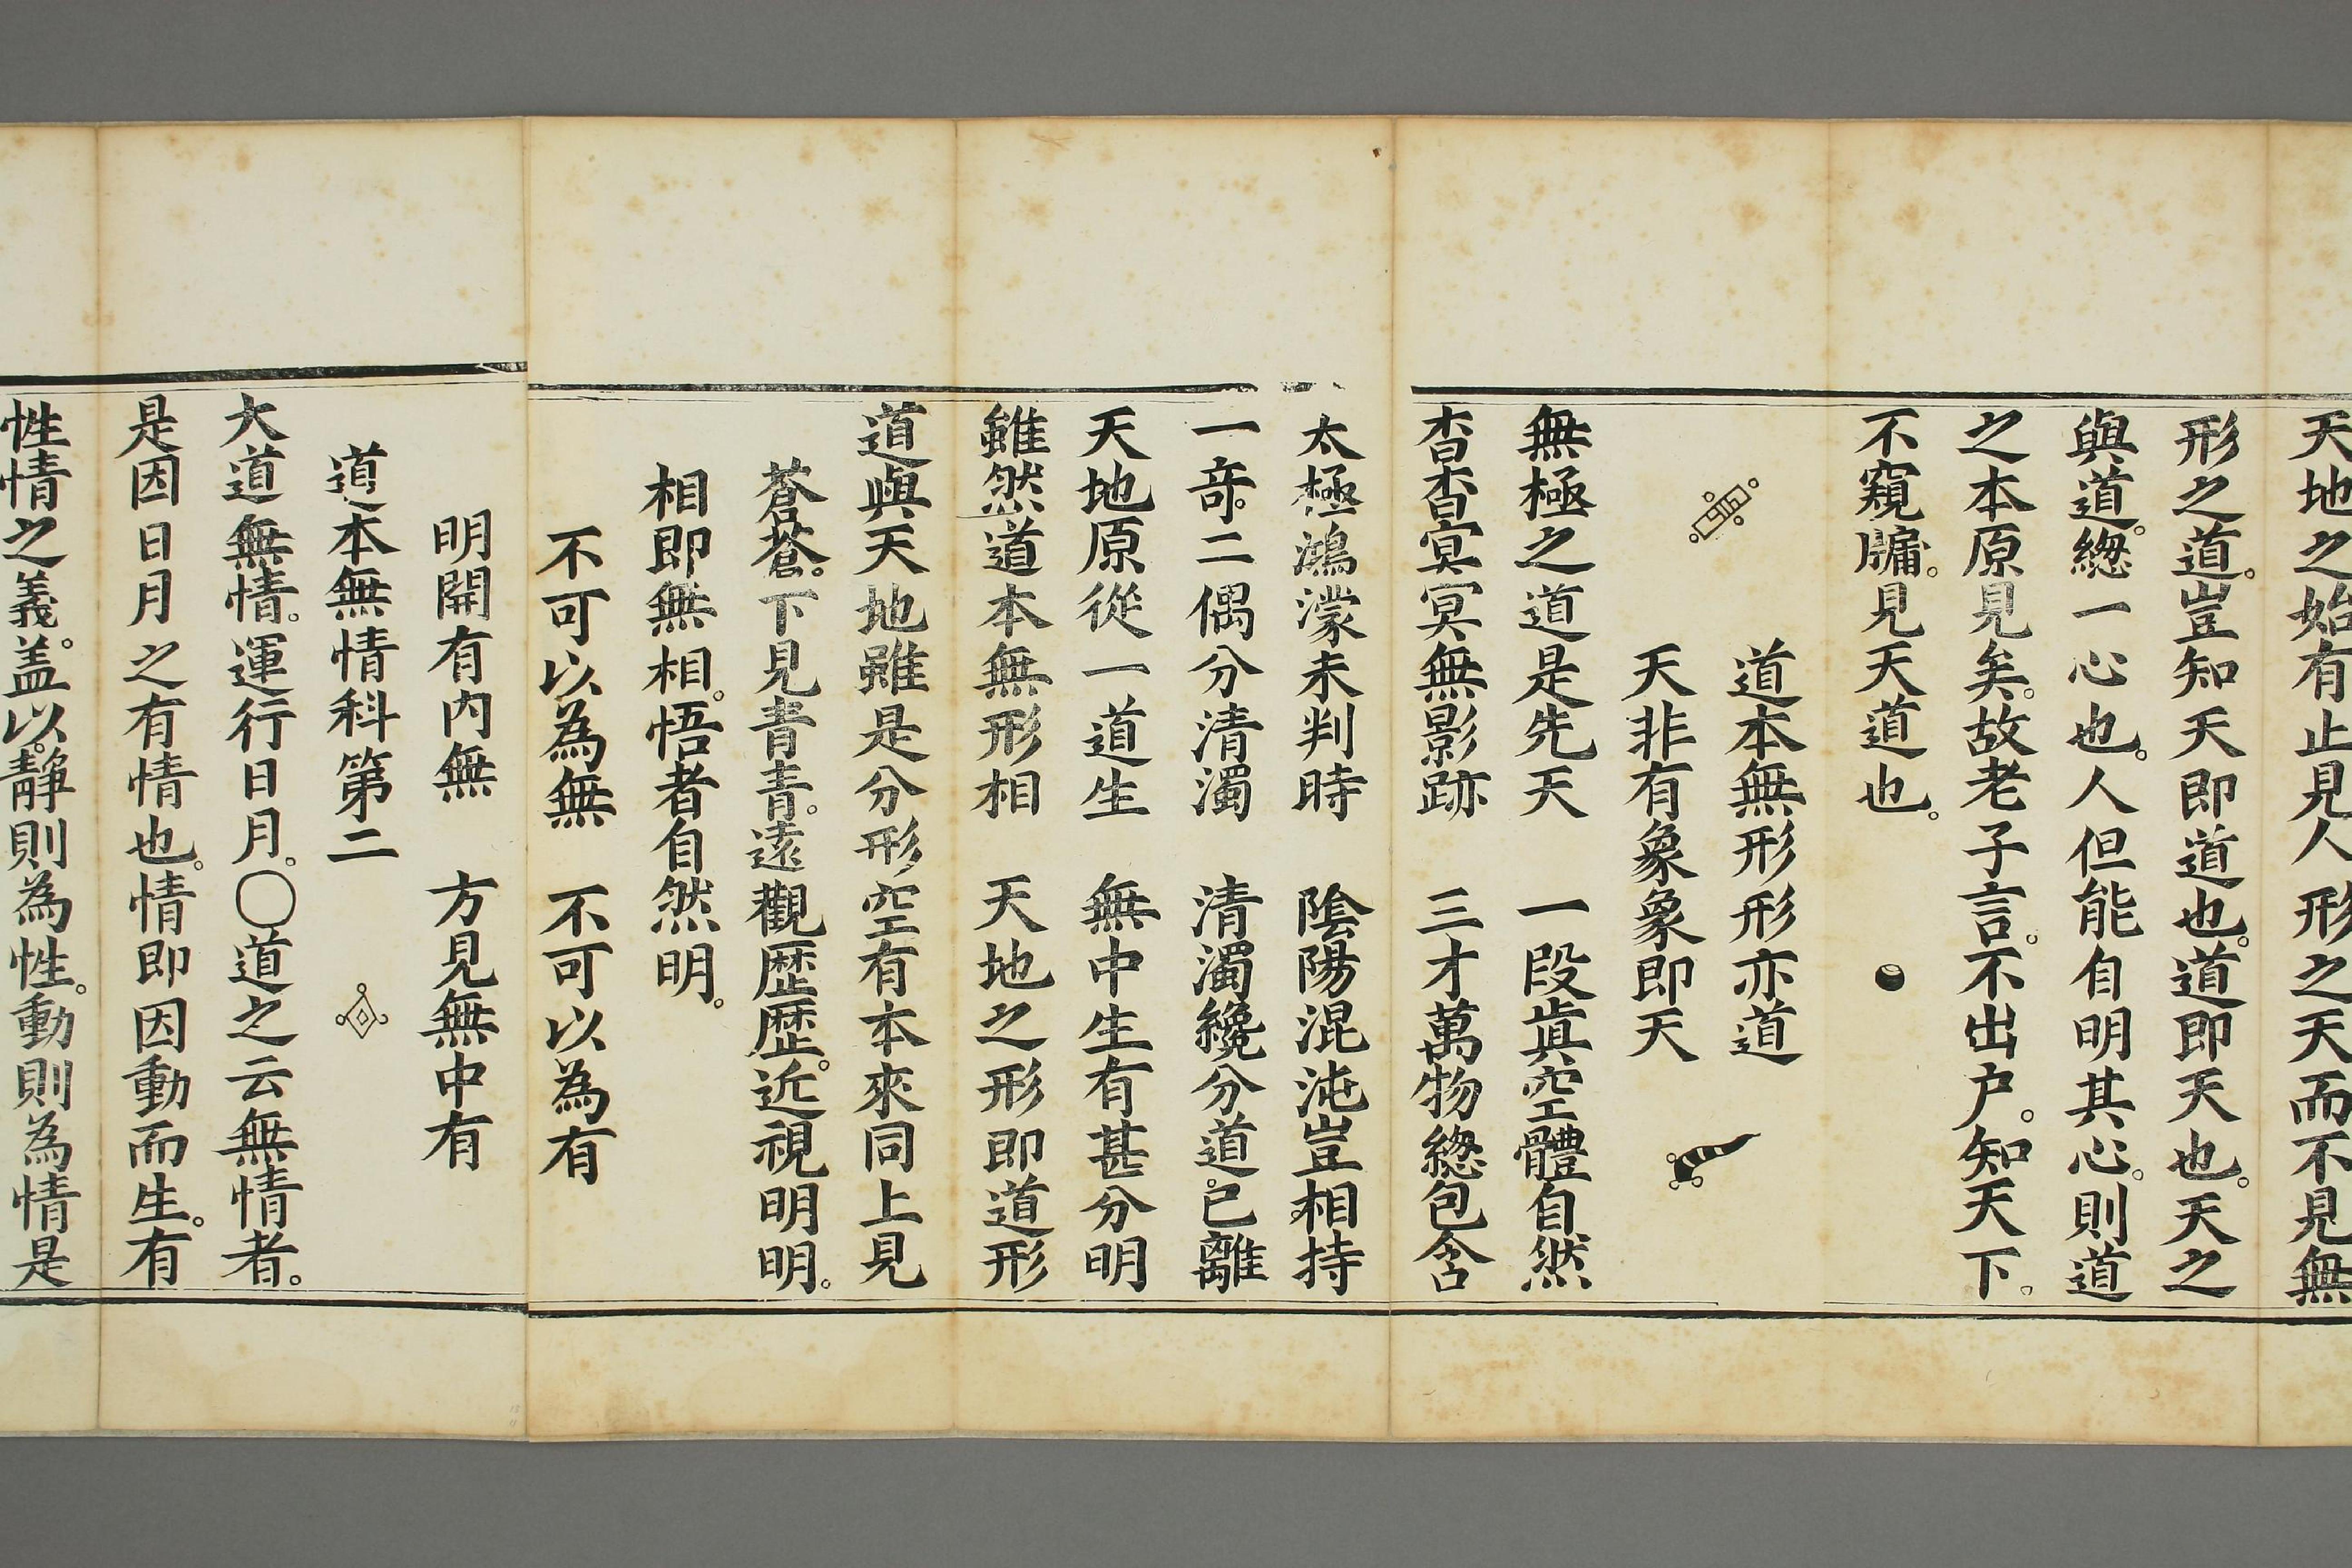 天地之始有止見人形之天而不見無
形之道。豈知天即道也。道即天也。天之
與道。緫一心也。人但能自明其心。則道
之本原見矣。故老子言。不出户。知天下。
不窺牖。見天道也。
道本無形形亦道
天非有象象即天
無極之道是先天　一段眞空體自然
杳杳冥冥無影跡　三才萬物緫包含
太極鴻濛未判時　陰陽混沌豈相持
一竒。二偶分清濁　清濁纔分道已離
天地原從一道生　無中生有甚分明
雖然道本無形相　天地之形即道形
道與天地雖是分形空有本來同上見
蒼蒼。下見青青。遠觀歷歷。近視明明。
相即無相。悟者自然明。
不可以為無　不可以為有
明開有内無　方見無中有
道本無情科第二
大道無情。運行日月。〇道之云無情者。
是因日月之有情也。情即因動而生。有
性情之義。盖以靜則為性。動則為情是